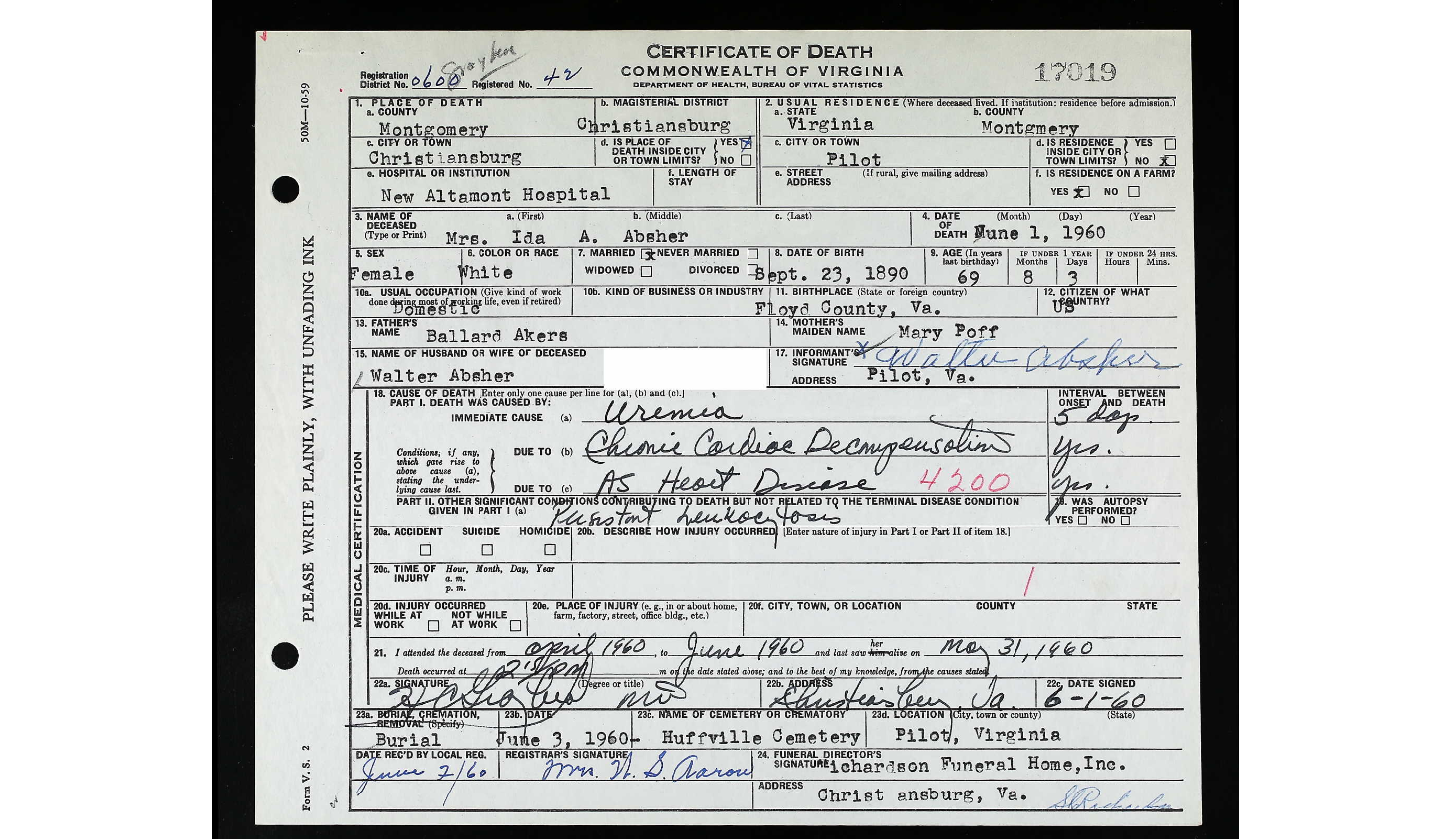 CERTIFICATE OF DEATH
COMMONWEALTH OF VIRGINIA
DEPARTMENT OF HEALTH, BUREAU OF VITAL STATISTICS
17019
Registration District No. 0600 Registered No. 42
50M—10-59
PLEASE WRITE PLAINLY, WITH UNFADING INK
Form V. S. 2
1. PLACE OF DEATH
a. COUNTY
Montgomery
b. MAGISTERIAL DISTRICT
Christiansburg
2. USUAL RESIDENCE (Where deceased lived. If institution: residence before admission.)
a. STATE
Virginia
b. COUNTY
Montgmery
c. CITY OR TOWN
Christiansburg
d. IS PLACE OF DEATH INSIDE CITY OR TOWN LIMITS? YES NO
c. CITY OR TOWN
Pilot
d. IS RESIDENCE INSIDE CITY OR TOWN LIMITS? YES NO x
e. HOSPITAL OR INSTITUTION
New Altamont Hospital
f. LENGTH OF STAY
e. STREET ADDRESS (If rural, give mailing address)
f. IS RESIDENCE ON A FARM?
YES x NO
3. NAME OF DECEASED (Type or Print)
a. (First) b. (Middle) c. (Last)
Mrs. Ida A. Absher
4. DATE OF DEATH (Month) (Day) (Year)
June 1, 1960
5. SEX
Female
6. COLOR OR RACE
White
7. MARRIED x NEVER MARRIED
WIDOWED DIVORCED
8. DATE OF BIRTH
Sept. 23, 1890
9. AGE (In years last birthday)
69
IF UNDER 1 YEAR Months Days
8 3
IF UNDER 24 HRS. Hours Mins.
10a. USUAL OCCUPATION (Give kind of work done during most of working life, even if retired)
Domestic
10b. KIND OF BUSINESS OR INDUSTRY
11. BIRTHPLACE (State or foreign country)
Floyd County, Va.
12. CITIZEN OF WHAT COUNTRY?
US
13. FATHER'S NAME
Ballard Akers
14. MOTHER'S MAIDEN NAME
Mary Poff
15. NAME OF HUSBAND OR WIFE OF DECEASED
Walter Absher
17. INFORMANT'S SIGNATURE
x Walter Absher
ADDRESS Pilot, Va.
MEDICAL CERTIFICATION
18. CAUSE OF DEATH [Enter only one cause per line for (a), (b) and (c).]
INTERVAL BETWEEN ONSET AND DEATH
PART I. DEATH WAS CAUSED BY:
IMMEDIATE CAUSE (a) Uremia 5 days.
Conditions, if any, which gave rise to above cause (a), stating the underlying cause last.
DUE TO (b) Chronic Cardiac Decompensation yrs.
DUE TO (c) AS Heart Disease 4200 yrs.
PART II. OTHER SIGNIFICANT CONDITIONS CONTRIBUTING TO DEATH BUT NOT RELATED TO THE TERMINAL DISEASE CONDITION GIVEN IN PART I (a)
Persistant Leukocytosis
19. WAS AUTOPSY PERFORMED?
YES NO
20a. ACCIDENT SUICIDE HOMICIDE
20b. DESCRIBE HOW INJURY OCCURRED [Enter nature of injury in Part I or Part II of item 18.]
20c. TIME OF INJURY Hour, Month, Day, Year
a. m.
p. m.
20d. INJURY OCCURRED
WHILE AT WORK NOT WHILE AT WORK
20e. PLACE OF INJURY (e. g., in or about home, farm, factory, street, office bldg., etc.)
20f. CITY, TOWN, OR LOCATION COUNTY STATE
21. I attended the deceased from April 1960, to June 1960 and last saw her him alive on May 31, 1960
Death occurred at m on the date stated above; and to the best of my knowledge, from the causes stated
22a. SIGNATURE (Degree or title)
MD
22b. ADDRESS
Christiansburg, Va.
22c. DATE SIGNED
6-1-60
23a. BURIAL, CREMATION, REMOVAL (Specify)
Burial
23b. DATE
June 3, 1960-
23c. NAME OF CEMETERY OR CREMATORY
Huffville Cemetery
23d. LOCATION (City, town or county) (State)
Pilot, Virginia
DATE REC'D BY LOCAL REG.
June 2/60
REGISTRAR'S SIGNATURE
Mrs. W. S. Aaron
24. FUNERAL DIRECTOR'S SIGNATURE
ichardson Funeral Home,Inc.
ADDRESS
Christ ansburg, Va.